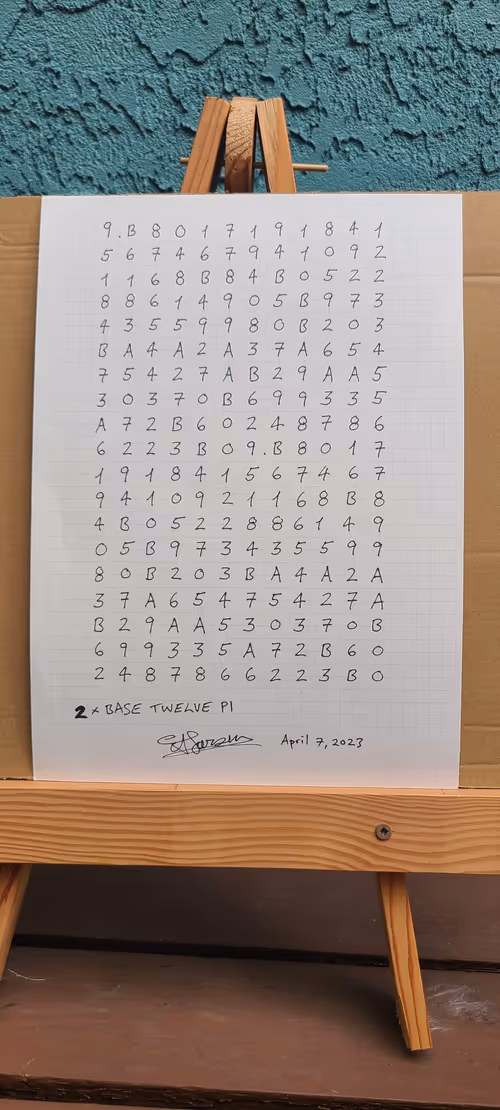 9.B 8 0 1 7 1 9 1 8 4 1
5 6 7 4 6 7 9 4 1 0 9 2
1 1 6 8 B 8 4 B 0 5 2 2
8 8 6 1 4 9 0 5 B 9 7 3
4 3 5 5 9 9 8 0 B 2 0 3
B A 4 A 2 A 3 7 A 6 5 4
7 5 4 2 7 A B 2 9 A A 5
3 0 3 7 0 B 6 9 9 3 3 5
A 7 2 B 6 0 2 4 8 7 8 6
6 2 2 3 B 0 9.B 8 0 1 7
1 9 1 8 4 1 5 6 7 4 6 7
9 4 1 0 9 2 1 1 6 8 B 8
4 B 0 5 2 2 8 8 6 1 4 9
0 5 B 9 7 3 4 3 5 5 9 9
8 0 B 2 0 3 B A 4 A 2 A
3 7 A 6 5 4 7 5 4 2 7 A
B 2 9 A A 5 3 0 3 7 0 B
6 9 9 3 3 5 A 7 2 B 6 0
2 4 8 7 8 6 6 2 2 3 B 0
2 × BASE TWELVE PI
April 7, 2023